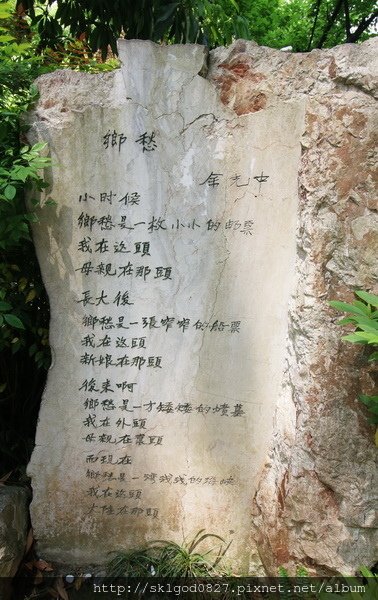 鄉愁
余光中
小时候
鄉愁是一枚小小的邮票
我在这頭
母親在那頭
長大後
鄉愁是一張窄窄的船票
我在这頭
新娘在那頭
後来啊
鄉愁是一方矮矮的墳墓
我在外頭
母親在裏頭
而現在
鄉愁是一灣浅浅的海峡
我在这頭
大陸在那頭
http://sklgod0827.pixnet.net/album